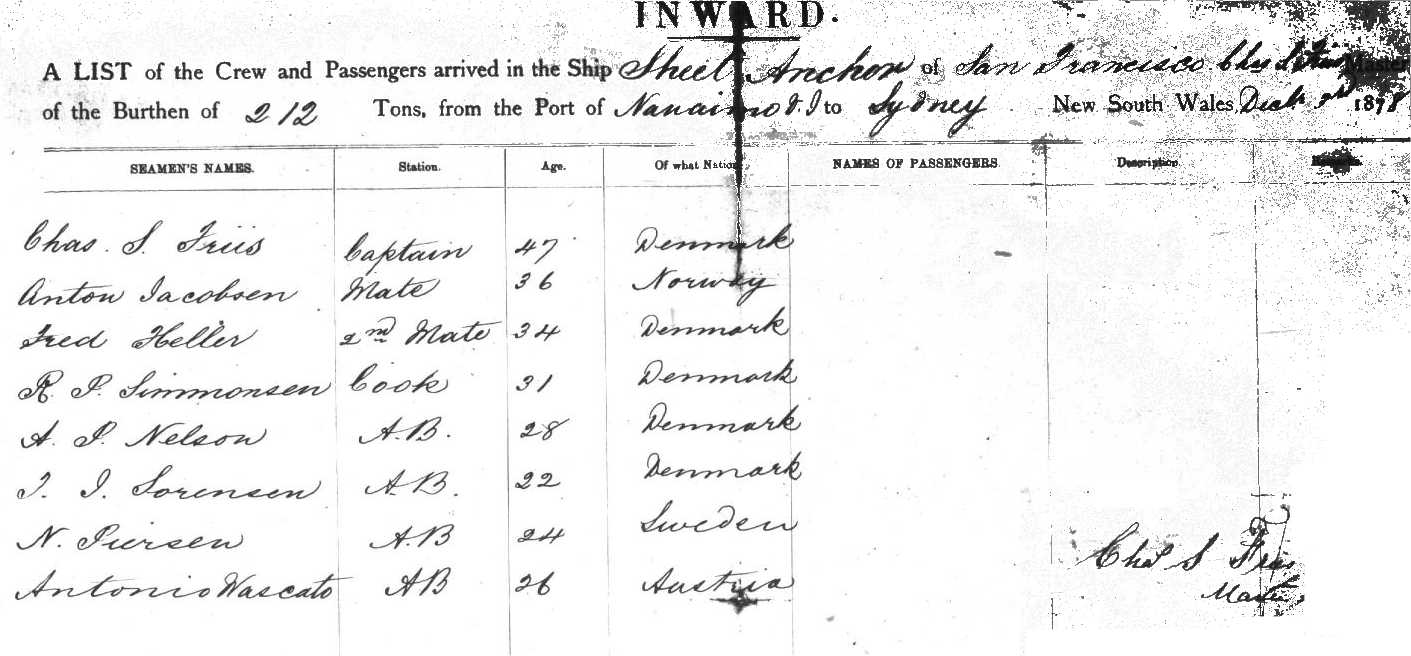 INWARD.
A LIST of the Crew and Passengers arrived in the Ship Sheet Anchor of San Francisco Chas S Friis Master
of the Burthen of 212 Tons, from the Port of Nanaimo to Sydney New South Wales, Decb 1878
SEAMEN'S NAMES. Station. Age. Of what Nation. NAMES OF PASSENGERS. Description.
Chas. S. Friis Captain 47 Denmark
Anton Jacobsen Mate 36 Norway
Fred Heller 2nd Mate 34 Denmark
R. P. Simmonsen Cook 31 Denmark
A. P. Nelson A.B. 28 Denmark
J. J. Sorensen A.B. 22 Denmark
N. Piersen A.B 24 Sweden
Antonio Wascato AB 26 Austria
Chas S Friis
Master